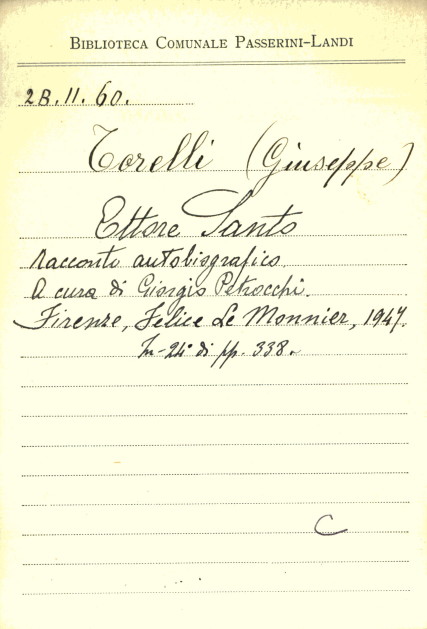 BIBLIOTECA COMUNALE PASSERINI-LANDI
2B.11.60.
Torelli (Giuseppe)
Ettore Santo
Racconto autobiografico
A cura di Giorgio Petrocchi.
Firenze, Felice Le Monnier, 1947.
In-24° di pp. 338.
C